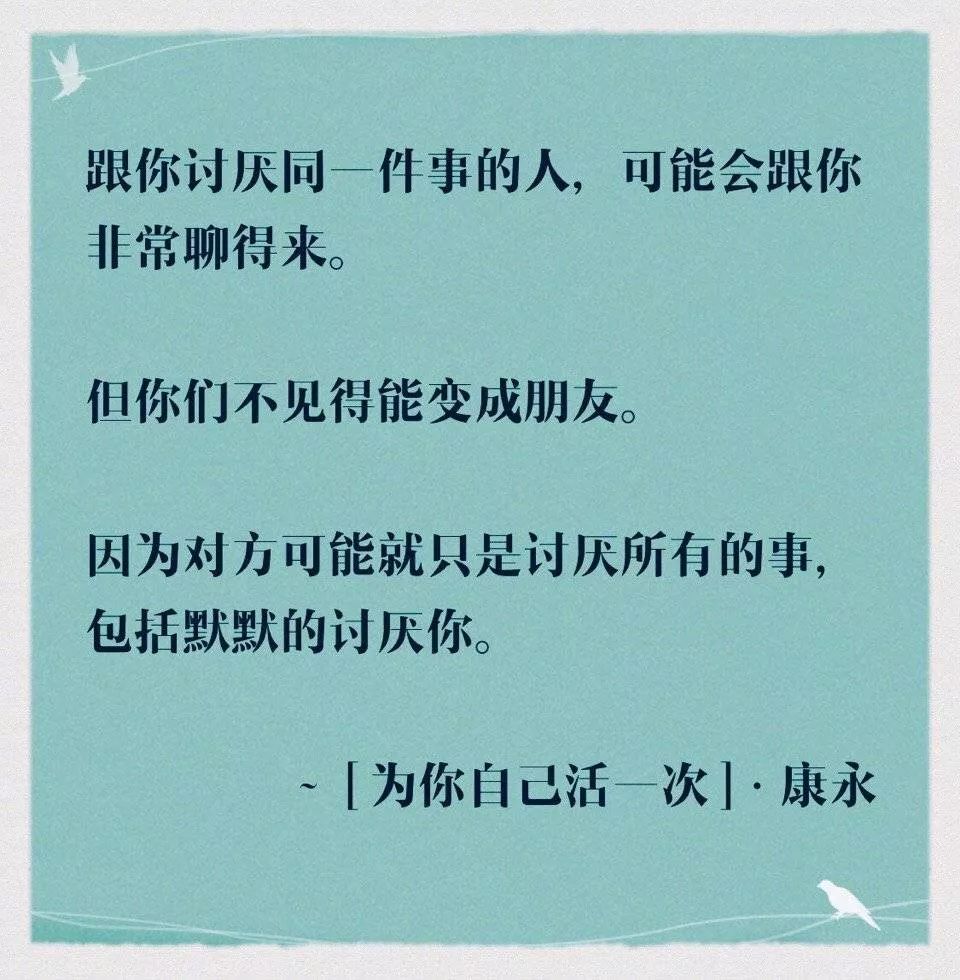 跟你讨厌同一件事的人，可能会跟你
非常聊得来。
但你们不见得能变成朋友。
因为对方可能就只是讨厌所有的事，
包括默默的讨厌你。
~［为你自己活一次］· 康永